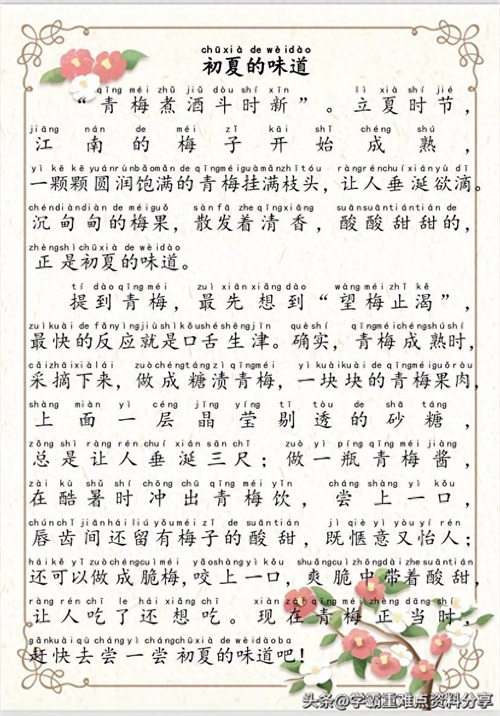 chūxià de wèidào
初夏的味道
qīng méi zhǔ jiǔ dòu shí xīn lì xià shí jié
“青梅煮酒斗时新”。立夏时节，
jiāng nán de méi zǐ kāi shǐ chéng shú
江南的梅子开始成熟，
yì kē kē yuánrùnbǎomǎn de qīngméiguàmǎnzhītóu ràngrénchuíxiányù dī
一颗颗圆润饱满的青梅挂满枝头，让人垂涎欲滴。
chéndiàndiàn de méiguǒ sàn fā zheqīngxiāng suānsuāntiántián de
沉甸甸的梅果，散发着清香，酸酸甜甜的，
zhèngshìchūxià de wèidào
正是初夏的味道。
tí dàoqīngméi zuì xiānxiǎngdào wàngméizhǐ kě
提到青梅，最先想到“望梅止渴”，
zuìkuài de fǎnyìngjiùshìkǒushéshēngjīn quèshí qīngméichéngshúshí
最快的反应就是口舌生津。确实，青梅成熟时，
cǎizhāixiàlái zuòchéngtángzìqīngméi yí kuàikuài de qīngméiguǒròu
采摘下来，做成糖渍青梅，一块块的青梅果肉，
shàng miàn yì céng jīng yíng tī tòu de shā táng
上面一层晶莹剔透的砂糖，
zǒng shì ràng rén chuí xián sān chǐ zuò yì píng qīng méi jiàng
总是让人垂涎三尺；做一瓶青梅酱，
zài kù shǔ shí chōng chū qīng méi yǐn cháng shàng yì kǒu
在酷暑时冲出青梅饮，尝上一口，
chúnchǐ jiānháiliú yǒuméi zǐ de suāntián jì qiè yì yòu yí rén
唇齿间还留有梅子的酸甜，既惬意又怡人；
háikě yǐ zuòchéngcuìméi yǎoshàngyìkǒu shuǎngcuìzhōngdàizhesuāntián
还可以做成脆梅，咬上一口，爽脆中带着酸甜，
ràng rén chī le hái xiǎng chī xiàn zài qīng méi zhèng dāng shí
让人吃了还想吃。现在青梅正当时，
gǎnkuàiqù chángyì chángchūxià de wèidàoba
赶快去尝一尝初夏的味道吧！
头条@学霸重难点资料分享